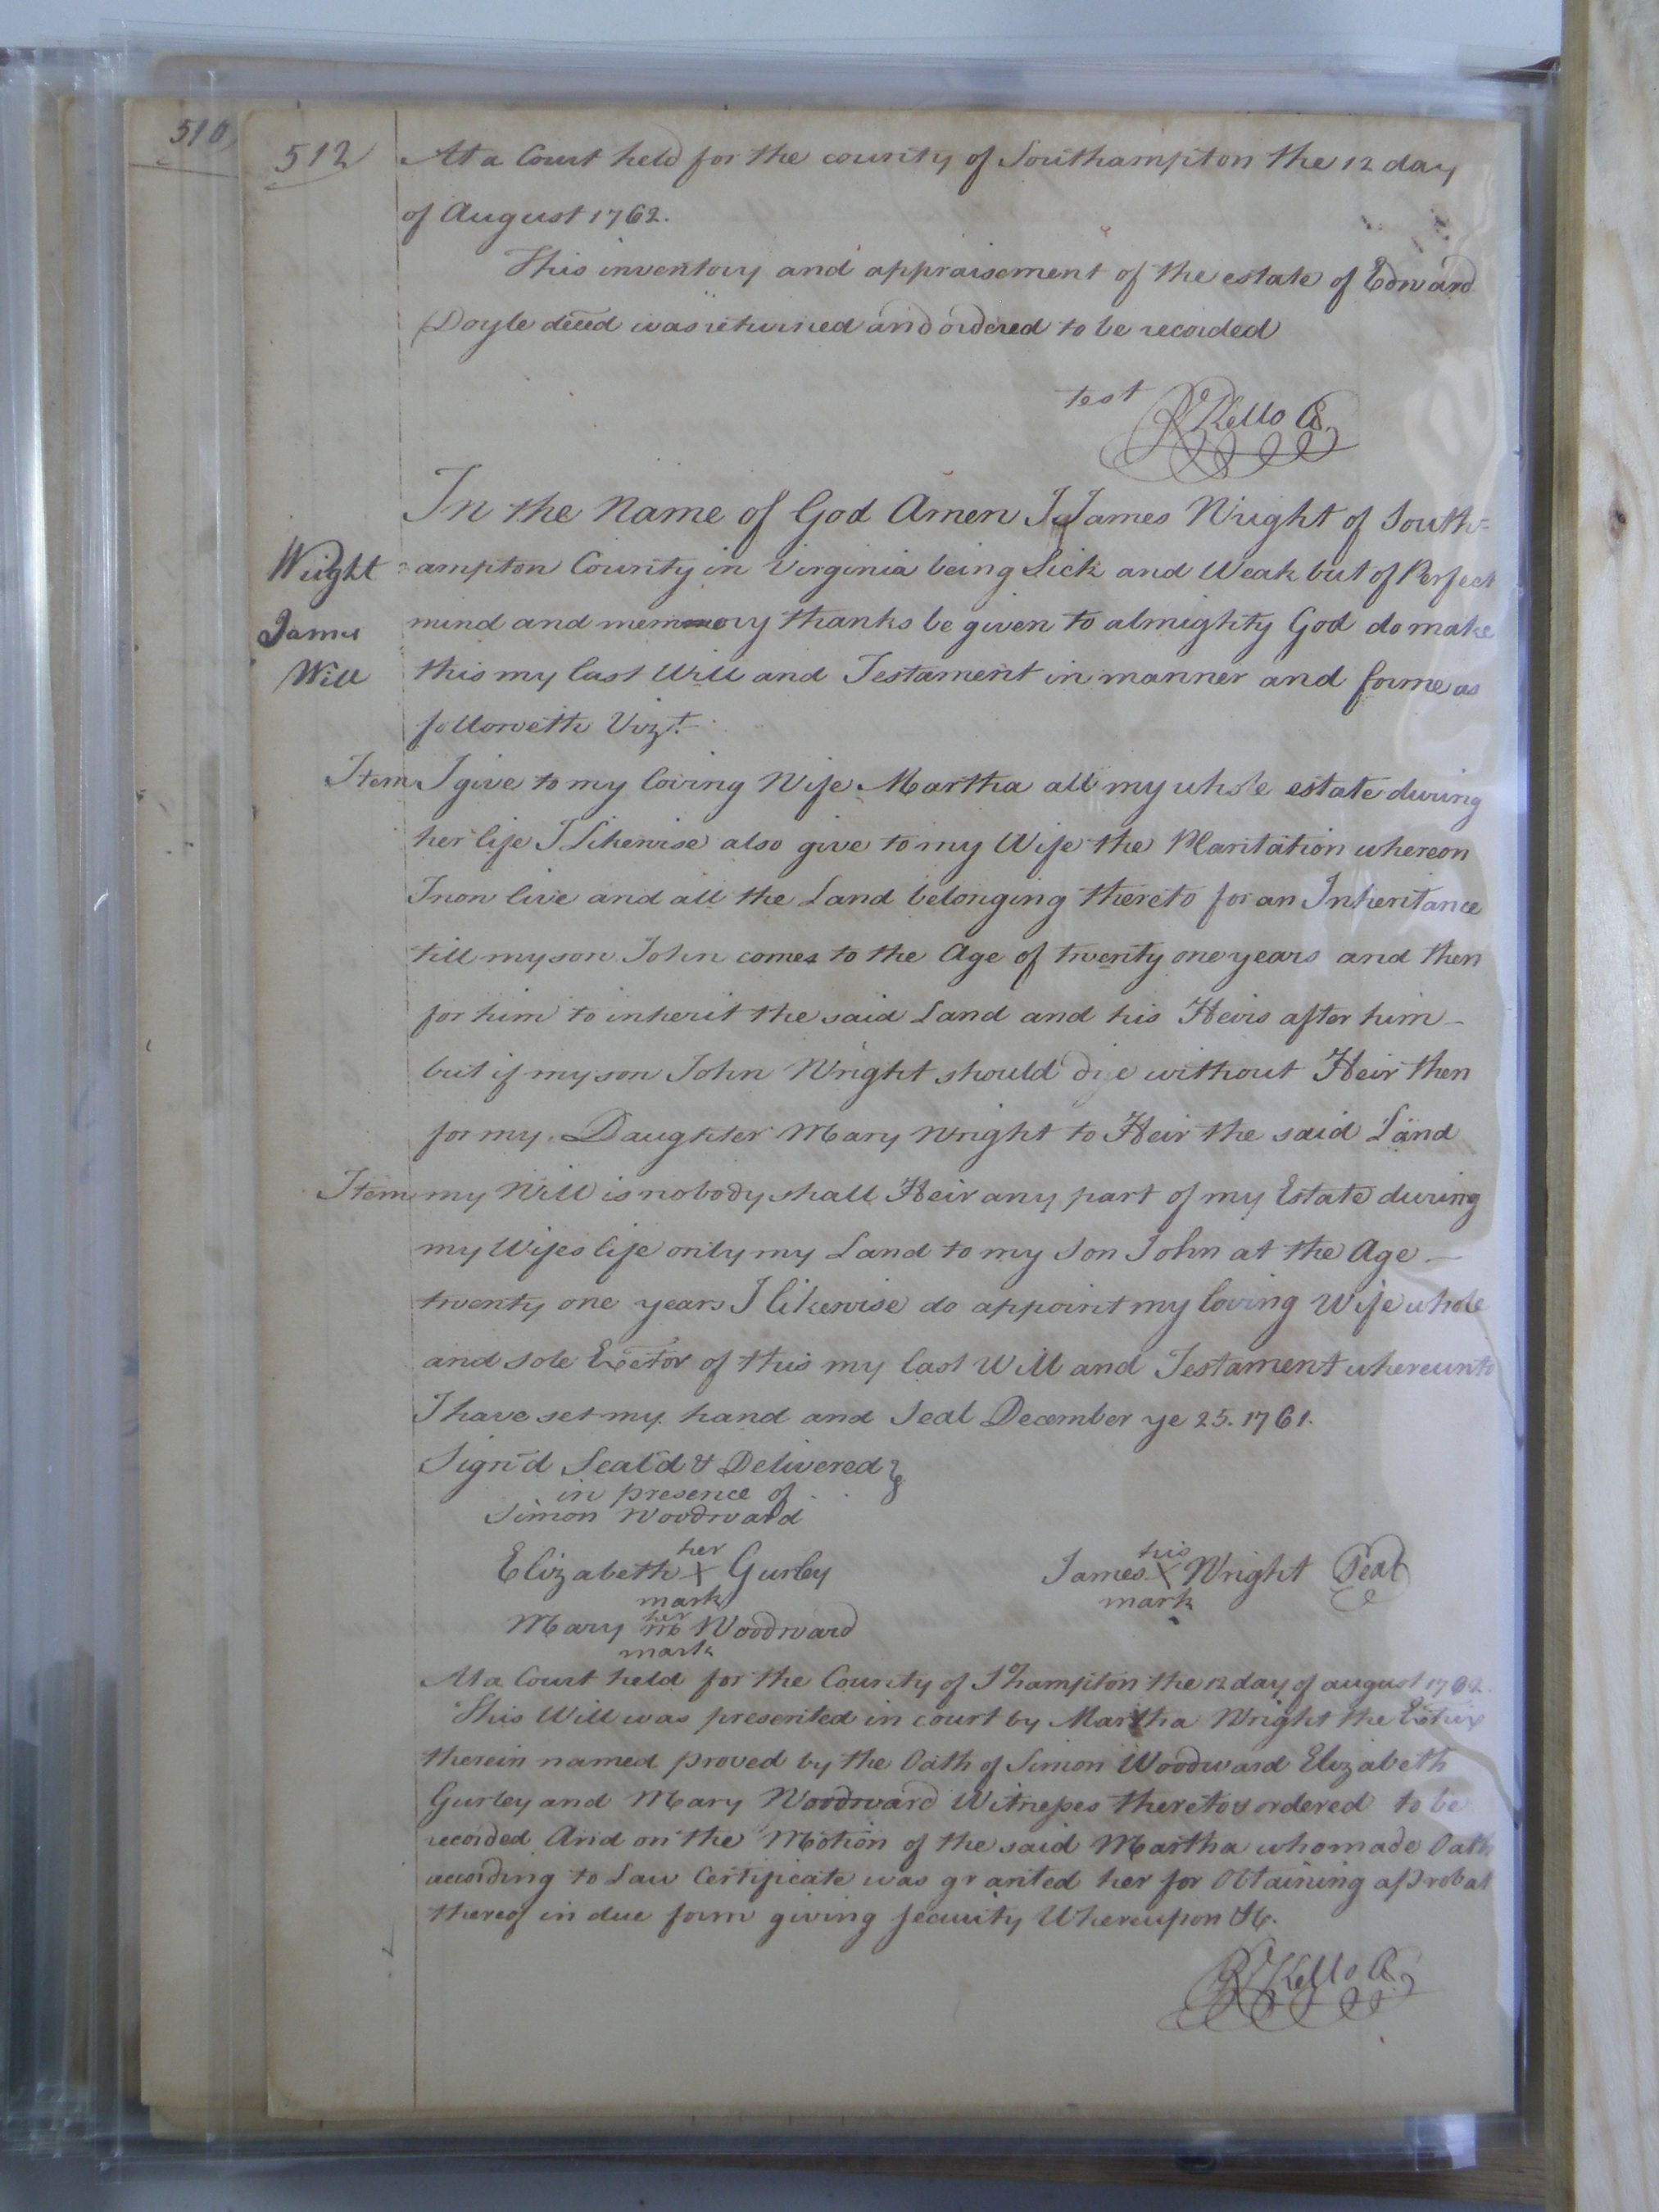 510
512
At a Court held for the county of Southampton the 12 day
of August 1762.
This inventory and appraisement of the estate of Edward
Doyle deced was returned and ordered to be recorded
test
R Kello Ct.
In the Name of God Amen I James Wright of South=
Wright
=ampton County in Virginia being Sick and Weak but of Perfect
James
mind and memmory thanks be given to almighty God do make
Will
this my last Will and Testament in manner and forme as
followeth Vizt.
Item I give to my loving Wife Martha all my whole estate during
her life I Likewise also give to my Wife the Plantation whereon
I now live and all the Land belonging thereto for an Inheritance
till my son John comes to the Age of twenty one years and then
for him to inherit the said Land and his Heirs after him -
but if my son John Wright should dye without Heir then
for my Daughter Mary Wright to Heir the said Land
Item my Will is nobody shall Heir any part of my Estate during
my Wifes life only my Land to my Son John at the Age -
twenty one years I likewise do appoint my loving Wife whole
and sole Exētor of this my last Will and Testament whereunto
I have set my hand and Seal December ye 25. 1761.
Sign'd Seal'd & Delivered }
in presence of
Simon Woodward
her
Elizabeth X Gurley
mark
his
James X Wright Seal
mark
her
Mary m Woodward
mark
At a Court held for the County of So.hampton the 12 day of august 1762.
This Will was presented in court by Martha Wright the Exētrix
therein named proved by the Oath of Simon Woodward Elizabeth
Gurley and Mary Woodward Witnesses thereto & ordered to be
recorded And on the Motion of the said Martha who made Oath
according to Law Certificate was granted her for Obtaining a Probat
thereof in due form giving security Whereupon &c.
R Kello Ct.